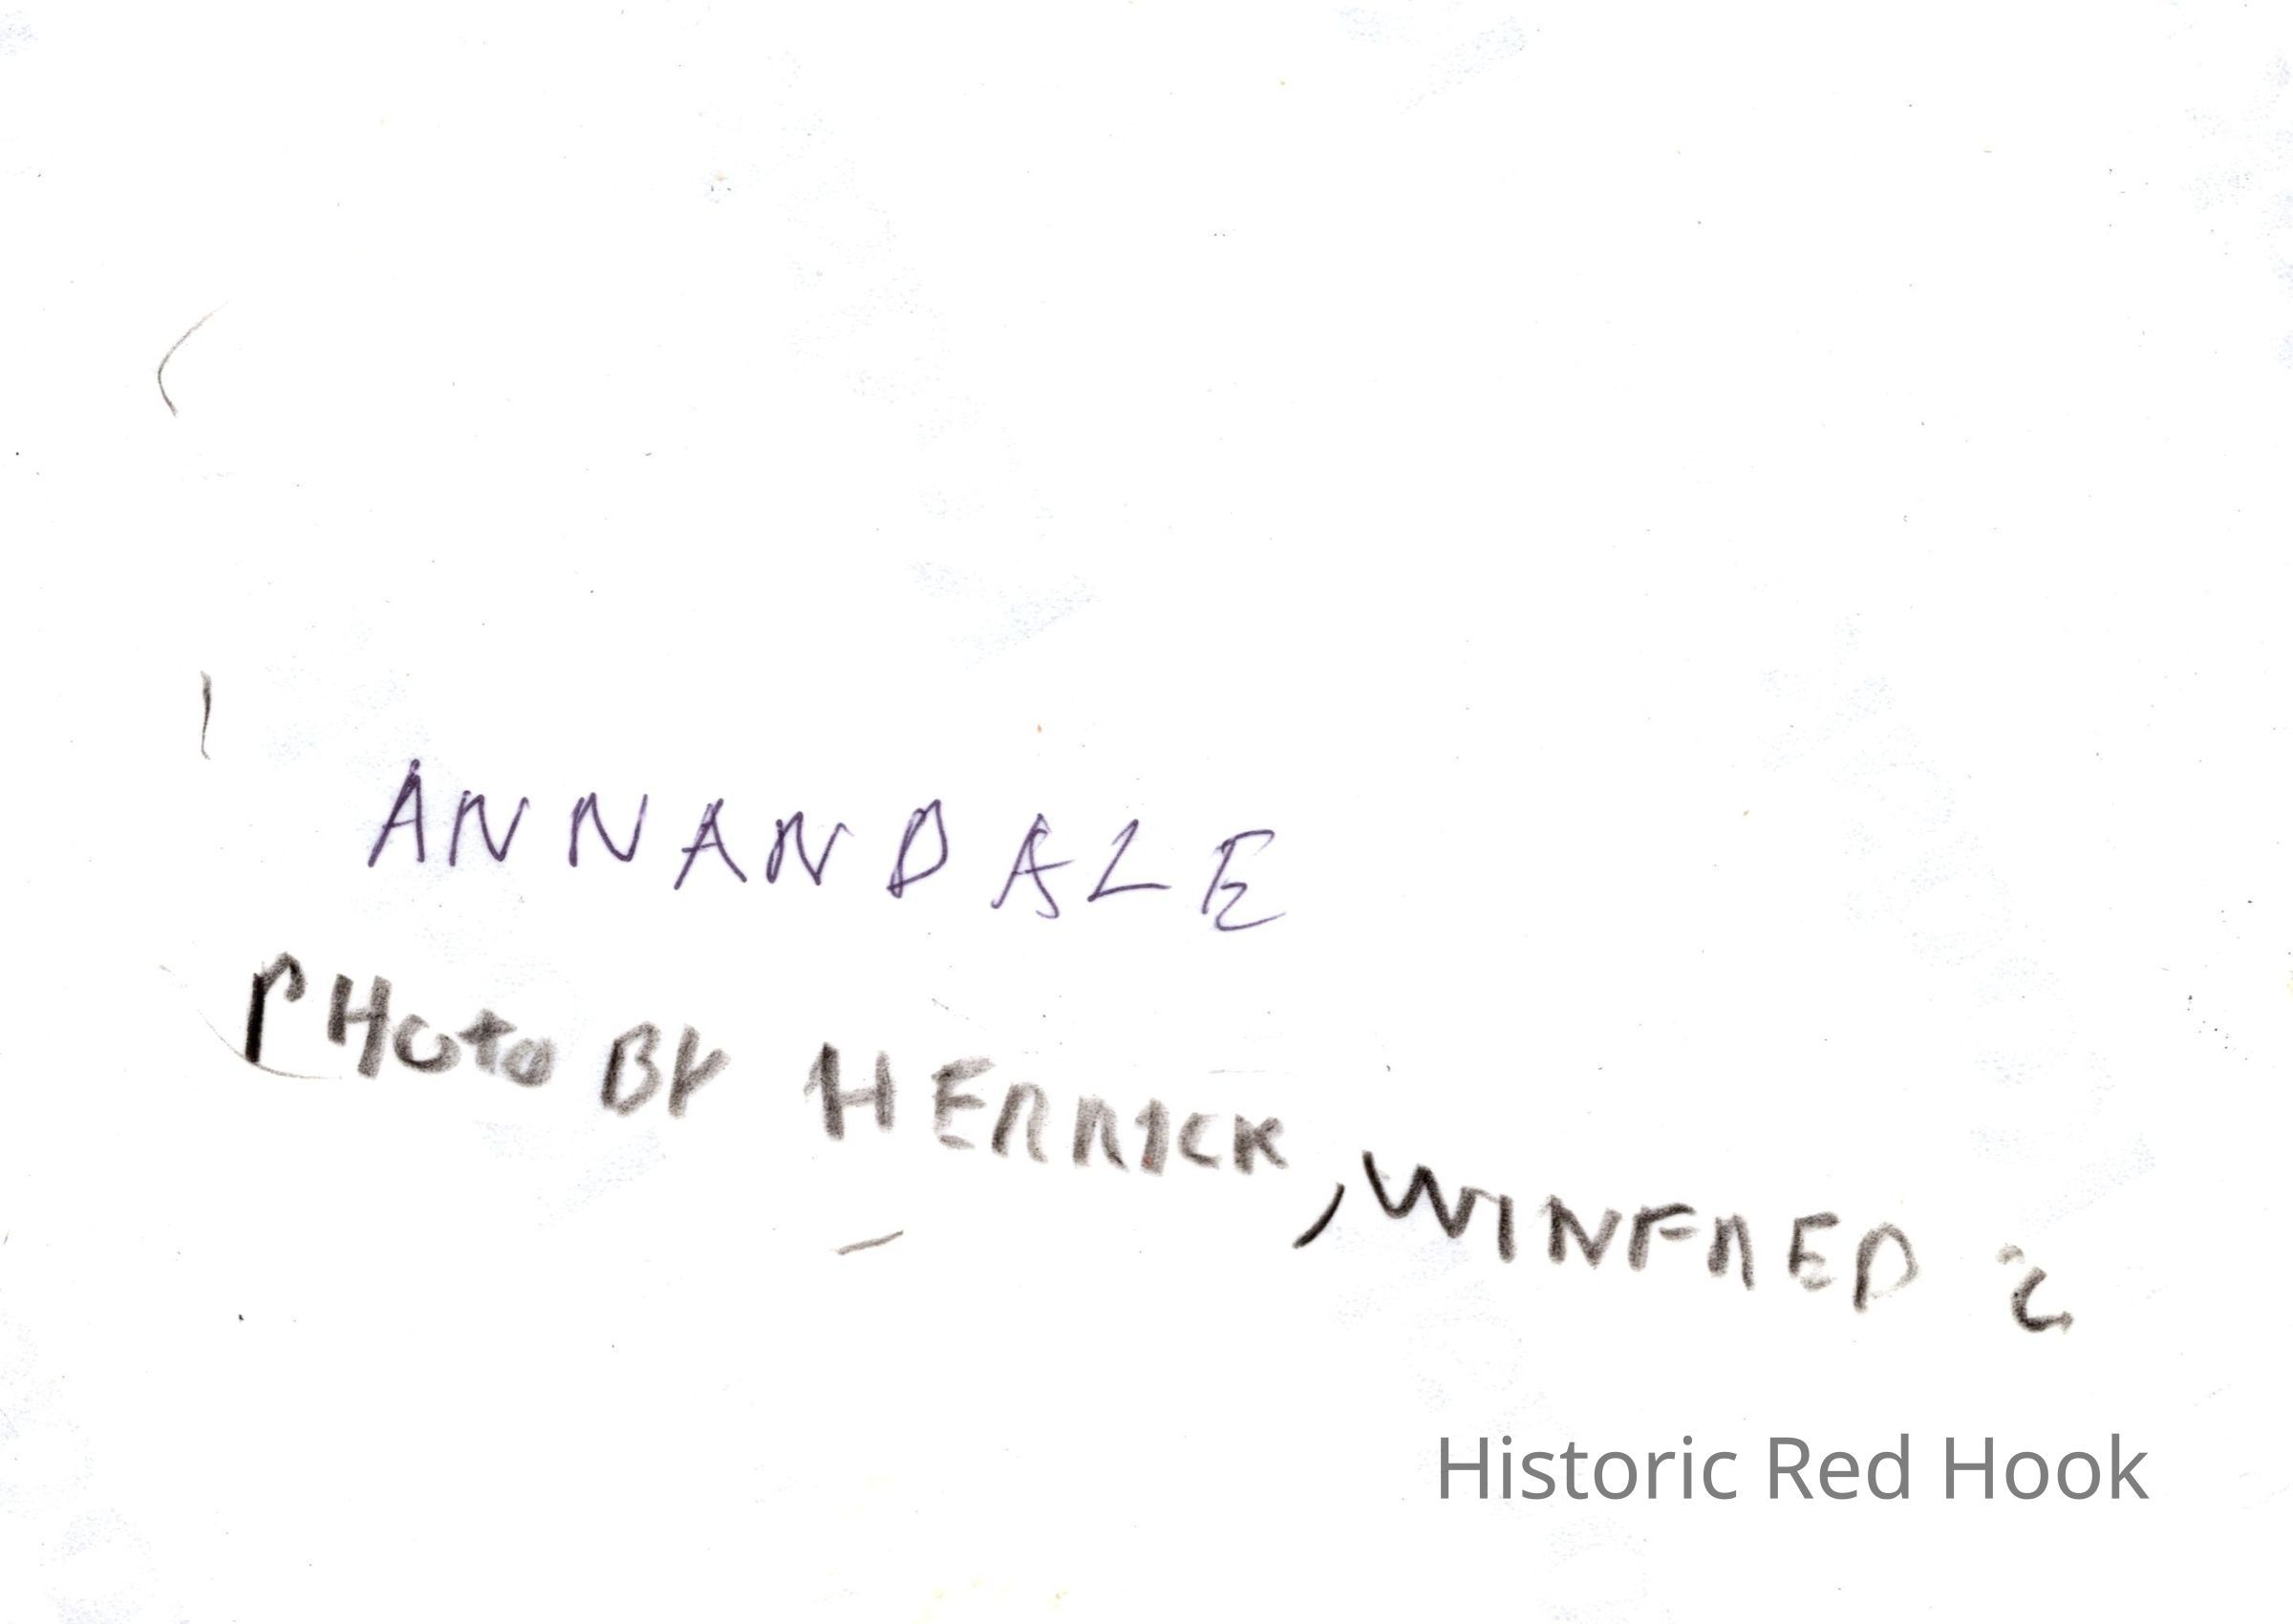 ANNANDALE
PHOTO BY HERRICK, WINFRED ?
Historic Red Hook